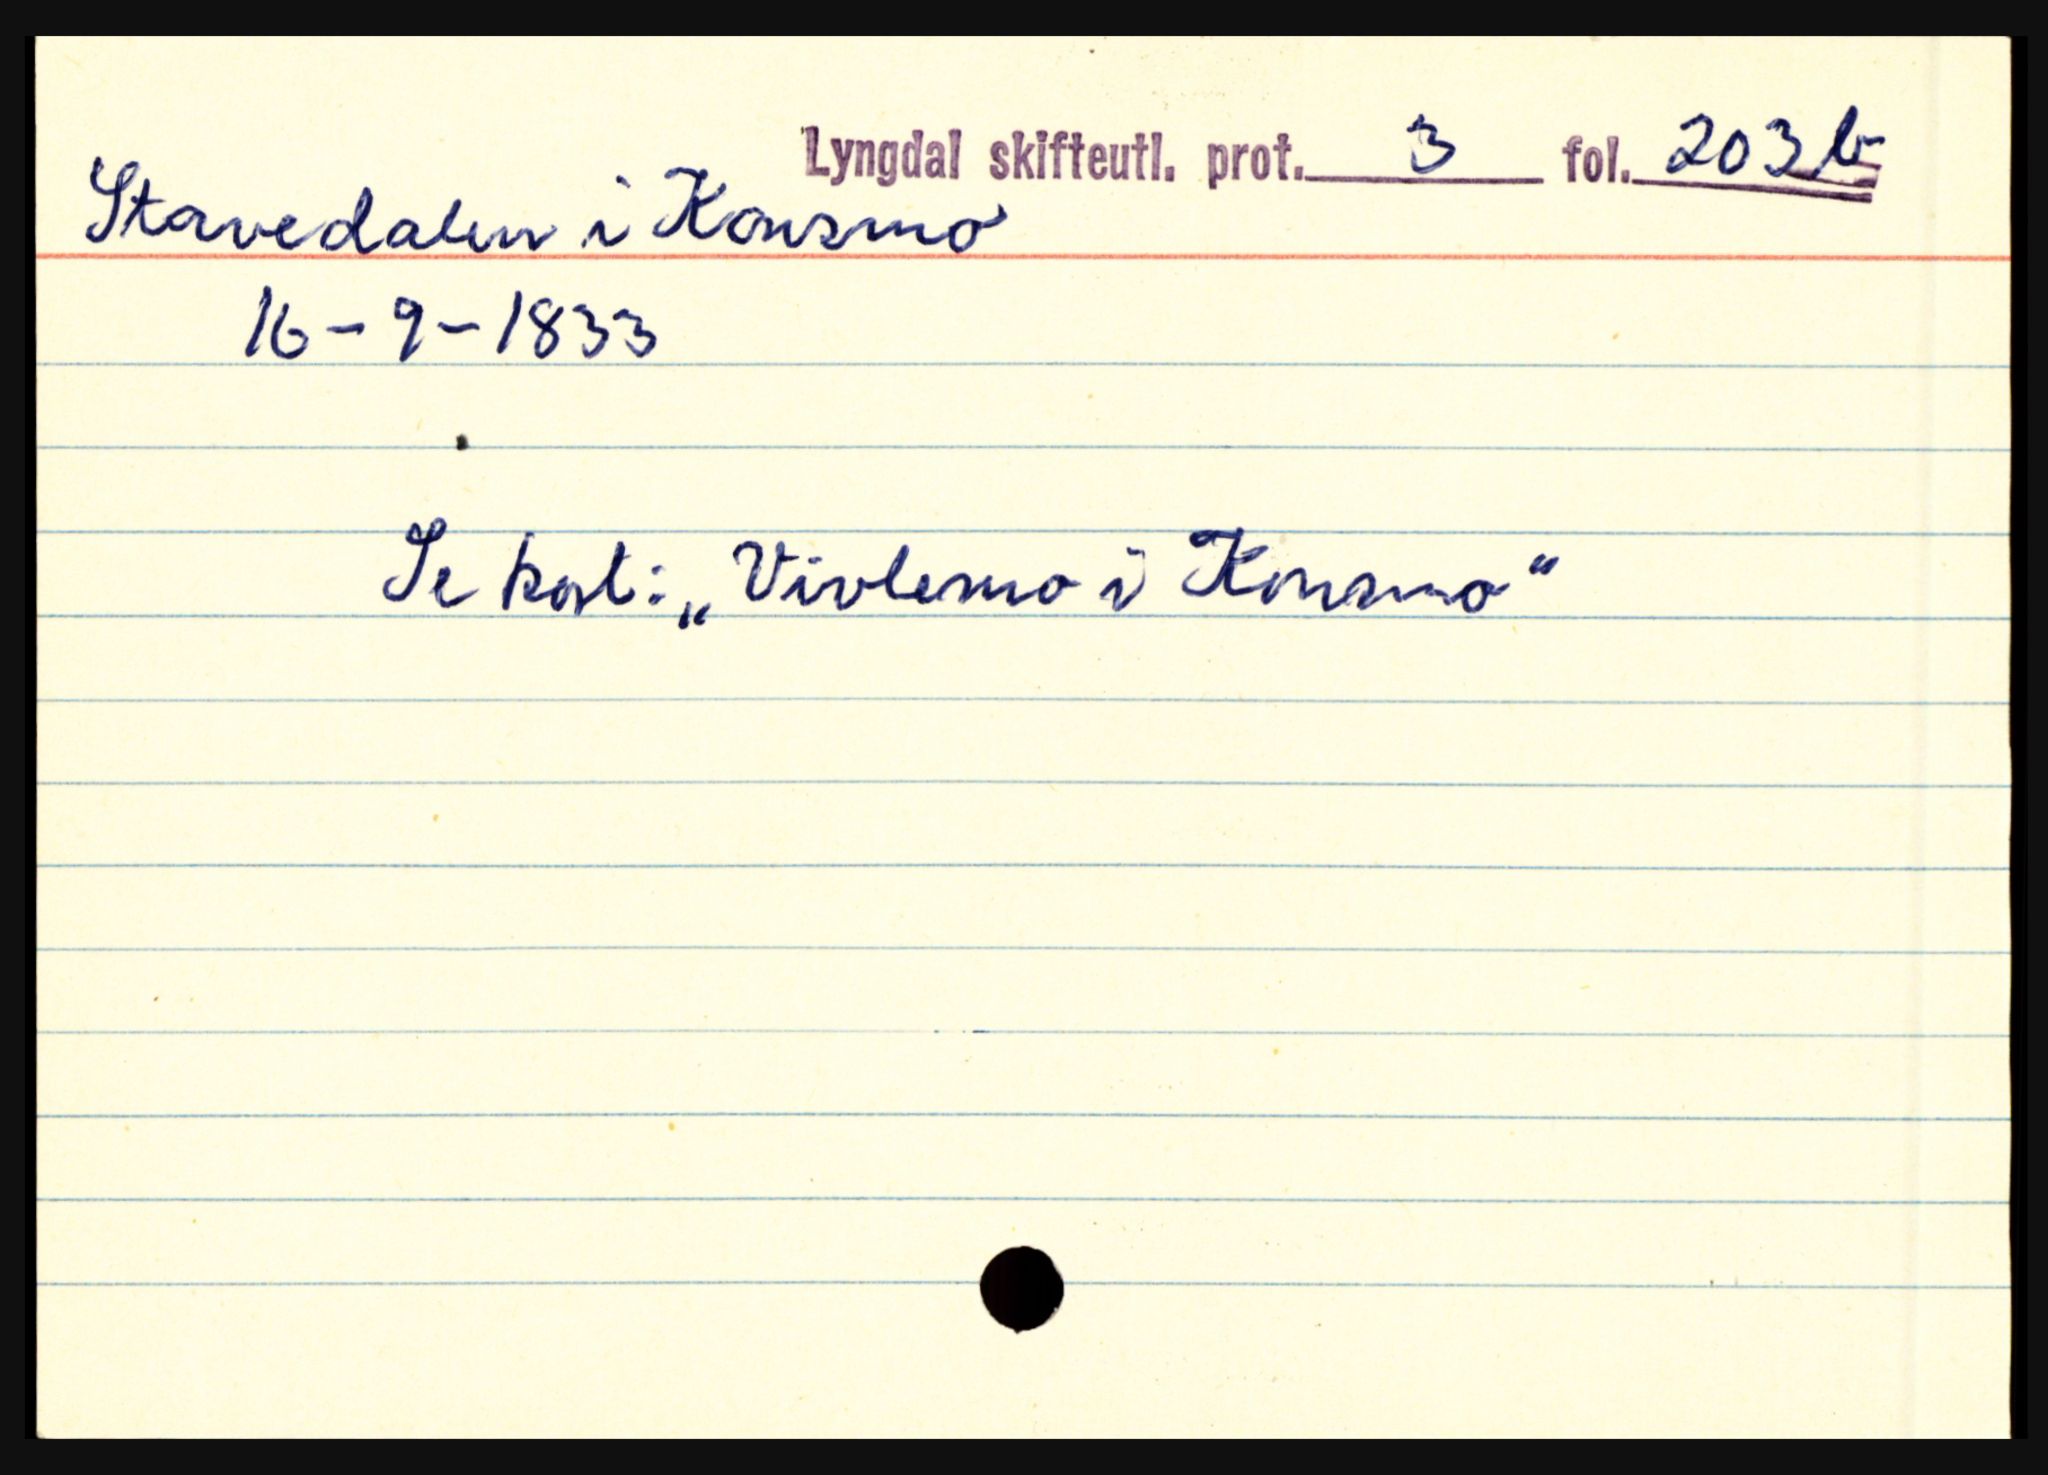 Lyngdal skifteutl. prot. 3 fol. 203b
Stavedalen i Konsmo
16-9-1833
Se kort: „Vivlemo i Konsmo“